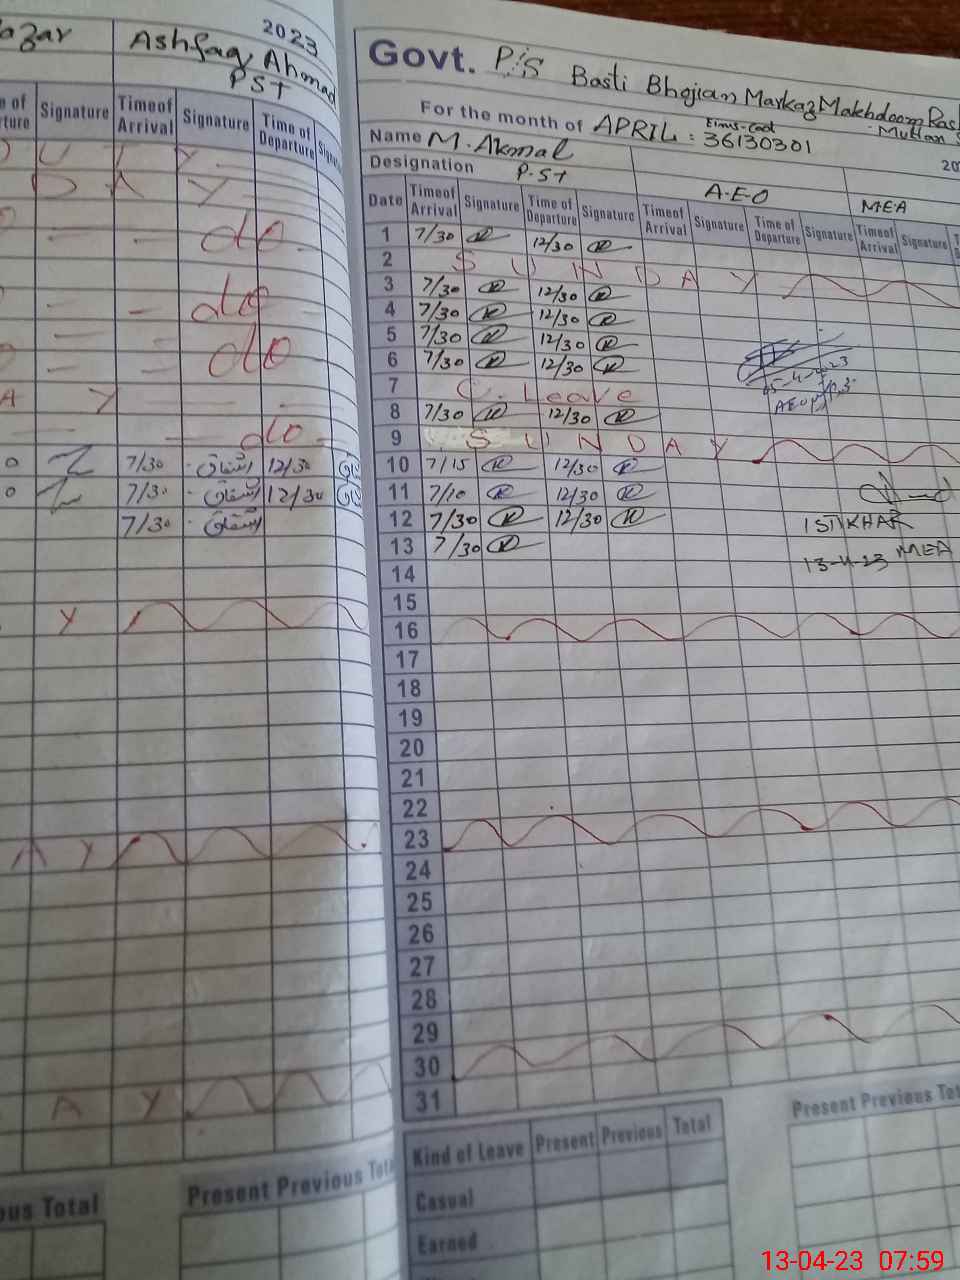 2023
Ashfaq Ahmad
PST
Signature Timeof Arrival Signature Time of Departure
D U T Y
D A Y
do
do
do
A Y
do
7/30 اشفاق 12/30
7/30 اشفاق 12/30
7/30 اشفاق
Y
A Y
A Y
Total
Present Previous
Govt. P/S Basti Bhojian Markaz Makhdoom
Multan
For the month of APRIL : 36130301
Name M. Akmal
Designation P.ST A.E.O MEA
Date Timeof Arrival Signature Time of Departure Signature Timeof Arrival Signature Time of Departure Signature Timeof Arrival Signature
1 7/30 12/30
2 S U N D A Y
3 7/30 12/30
4 7/30 12/30
5 7/30 12/30
6 7/30 12/30
05-4-2023
7 C. Leave
8 7/30 12/30
9 S U N D A Y
10 7/15 12/30
11 7/10 12/30
12 7/30 12/30
ISTKHAR
13 7/30
MEA
13-4-23
14
15
16
17
18
19
20
21
22
23
24
25
26
27
28
29
30
31
Kind of Leave Present Previous Total
Casual
Earned
Present Previous
13-04-23 07:59